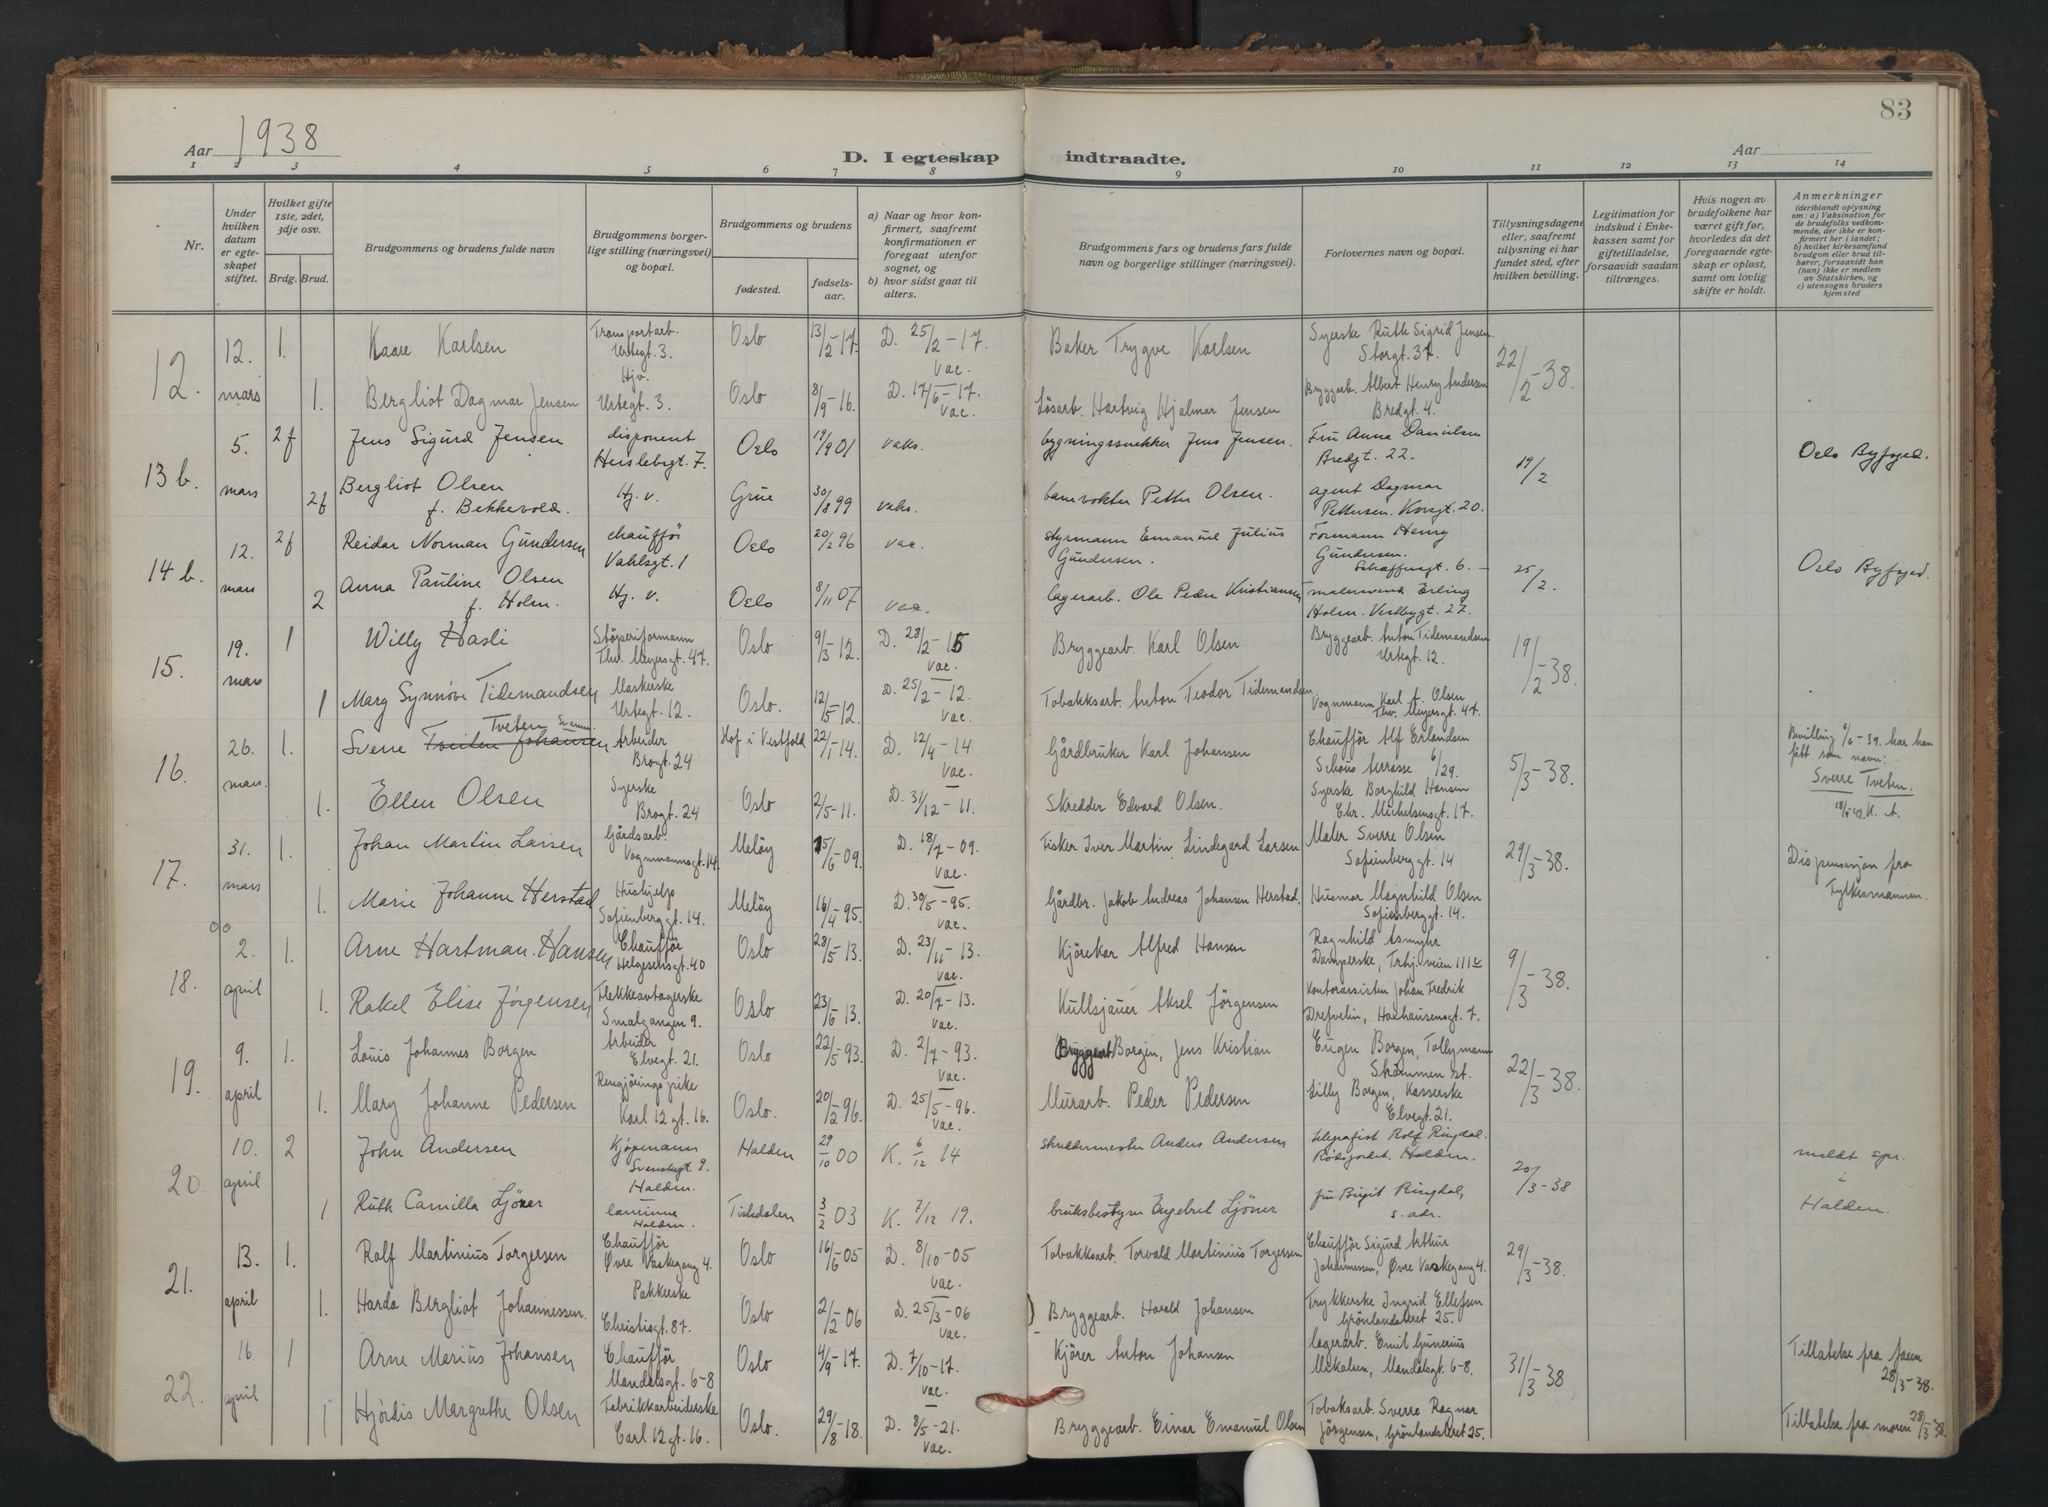 83
Aar 1938
D. I egteskap indtraadte.
Aar
1 2 3 4 5 6 7 8 9 10 11 12 13 14
Nr.
Under hvilken datum er egteskapet stiftet.
Hvilket gifte 1ste, 2det, 3dje osv.
Brdg. Brud.
Brudgommens og brudens fulde navn
Brudgommens borgerlige stilling (næringsvei) og bopæl.
Brudgommens og brudens
fødested.
fødselsaar.
a) Naar og hvor konfirmert, saafremt konfirmationen er foregaat utenfor sognet, og
b) hvor sidst gaat til alters.
Brudgommens fars og brudens fars fulde navn og borgerlige stillinger (næringsvei).
Forlovernes navn og bopæl.
Tillysningsdagene eller, saafremt tillysning ei har fundet sted, efter hvilken bevilling.
Legitimation for indskud i Enkekassen samt for giftetilladelse, forsaavidt saadan tiltrænges.
Hvis nogen av brudefolkene har været gift før, hvorledes da det foregaaende egteskap er opløst, samt om lovlig skifte er holdt.
Anmerkninger
(deriblandt oplysning om: a) Vaksination for de brudefolks vedkommende, der ikke er konfirmert her i landet; b) hvilket kirkesamfund brudgom eller brud tilhører, forsaavidt han (hun) ikke er medlem av Statskirken, og c) utensogns bruders hjemsted
12. 12. mars 1. Kaare Karlsen Transportarb. Urtegt. 3. Oslo 13/2-17. D. 25/2-17. vac. Baker Trygve Karlsen Syerske Ruth Sigrid Jensen Storgt. 37. 22/2-38.
1. Bergliot Dagmar Jensen Hjv. Urtegt. 3. Oslo 8/9-16. D. 17/6-17. vac. Løsarb. Hartvig Hjalmar Jensen Bryggarb. Albert Henry Andersen Bredgt. 4.
13 b. 5. mars 2f Jens Sigurd Jensen disponent Herslebsgt. 7. Oslo 19/9 01 vaks. bygningssnekker Jens Jensen. Fru Anna Danielsen Bredgt. 22. 19/2 Oslo Byfogd.
2f Bergliot Olsen f. Bekkevold. Hj. v. Grue 30/8 99 vaks. banevokter Petter Olsen. agent Dagmar Pettersen. Korsgt. 20.
14 b. 12. mars 2f Reidar Norman Gundersen chauffør Vahlsgt. 1 Oslo 20/2 96 vac. styrmann Emanuel Julius Gundersen. Formann Henry Gundersen. Schaffersgt. 6. 25/2. Oslo Byfogd.
2 Anna Pauline Olsen f. Holm. Hj. v. Oslo 8/11 07 vac. lagerarb. Ole Peder Kristiansen malersvend Erling Holm. Vestbygt. 27.
15. 19. mars 1 Willy Hasli Støperiformann Thv. Meyersgt. 47. Oslo 9/3-12. D. 28/2-15 vac. Bryggearb. Karl Olsen Bryggearb. Anton Tidemandsen Urtegt. 12. 19/2-38.
1 Marg Synnøve Tidemandsen Maskerske Urtegt. 12. Oslo. 12/5-12. D. 25/2-12. vac. Tobakksarb. Anton Teodor Tidemandsen Vognmann Karl A. Olsen Thv. Meyersgt. 47.
16. 26. mars 1. Sverre Tveiten Johansen Tveten Arbeider Brogt. 24 Hof i Vestfold 22/1-14. D. 12/4-14 vac. Gårdbruker Karl Johansen Chauffør Alf Erlandsen Schous terrasse 6/29. 5/3-38. Bevilling 6/6-39. har han fått som navn: Sverre Tveten. 18/5 42. K. A.
1. Ellen Olsen Syerske Brogt. 24 Oslo 2/5-11. D. 31/12-11. Skredder Edvard Olsen. Syerske Borghild Hansen Chr. Michelsensgt. 17.
17. 31. mars 1. Johan Martin Larsen Gårdsarb. Vognmannsgt. 14. Meløy 15/6-09. D. 18/7-09. vac. Fisker Iver Martin Lindegard Larsen Maler Sverre Olsen Sofienberggt. 14 29/3-38. Dispensasjon fra Fylkesmannen.
1. Marie Johanne Herstad Hushjelp Sofienberggt. 14. Meløy 16/4-95. D. 30/5-95. vac. Gårdbr. Jakob Andreas Johansen Herstad. Husmor Magnhild Olsen Sofienberggt. 14.
18. 2. april 1. Arne Hartman Hansen Chauffør Helgesensgt. 40 Oslo 28/5-13. D. 23/11-13. vac. Kjørekar Alfred Hansen Ragnhild Asmyhr Damperske, Trhj.veien 111 9/3-38.
1. Rakel Elise Jørgensen Flekkeavtagerske Smalgangen 9. Oslo 23/6 13. D. 20/7-13. vac. Kullsjauer Aksel Jørgensen Kontorassisten Johan Fredrik Drefvelin, Haxhausensgt. 7.
19. 9. april 1. Louis Johannes Borgen Arbeider Elvegt. 21. Oslo 22/5-93. D. 2/7-93. vac. Bryggearb Borgen, Jens Kristian Eugen Borgen, Tollymann Strømmen st. 22/3-38.
1. Mary Johanne Pedersen Rengjøringspike Karl 12 gt. 16. Oslo. 20/2-96. D. 25/5-96. vac. Murarb. Peder Pedersen Lilly Borgen, Kasserske Elvegt. 21.
20. 10. april 2 John Andersen Kjøpmann Svenskegt. 9. Halden. Halden 29/10 00 K. 6/12 14 skreddermester Anders Andersen telegrafist Rolf Ringdal. Rødsjordet. Halden. 20/3-38 meldt spr. i Halden.
1 Ruth Camilla Ljøner Halden. Tistedalen 3/2 03 K. 7/12 19. bruksbestyrer Engebret Ljöner fru Birgit Ringdal, s. adr.
21. 13. april 1. Rolf Martinius Torgersen Chauffør Øvre Vaskegang 4. Oslo 16/6-05 D. 8/10-05 vac. Tobakksarb. Torvald Martinius Torgersen Chauffør Sigurd Arthur Johannessen, Øvre Vaskegang 4. 29/3-38.
1. Harda Bergliot Johannessen. Pakkerske Christiesgt. 87. Oslo 2/2 06 D. 25/3-06 vac. Bryggearb. Harald Johansen Trykkerske Ingrid Ellefsen Grønlandsleret 25.
22. 16. april 1 Arne Marius Johansen Chauffør Mandalsgt. 6-8 Oslo 4/9-17. D. 7/10-17. vac. Kjører Anton Johansen lagerarb. Emil Gunerius Mikalsen, Mandalsgt. 6-8. 31/3-38 Tillatelse fra faren 28/3-38.
1 Hjørdis Margrethe Olsen Fabrikkarbeiderske Carl 12 gt. 16. Oslo. 29/8-18. D. 8/5-21. vac. Bryggearb. Einar Emanuel Olsen Tobaksarb. Sverre Ragnar Jörgensen, Grönlandsleret 25. Tillatelse fra moren 28/3-38.